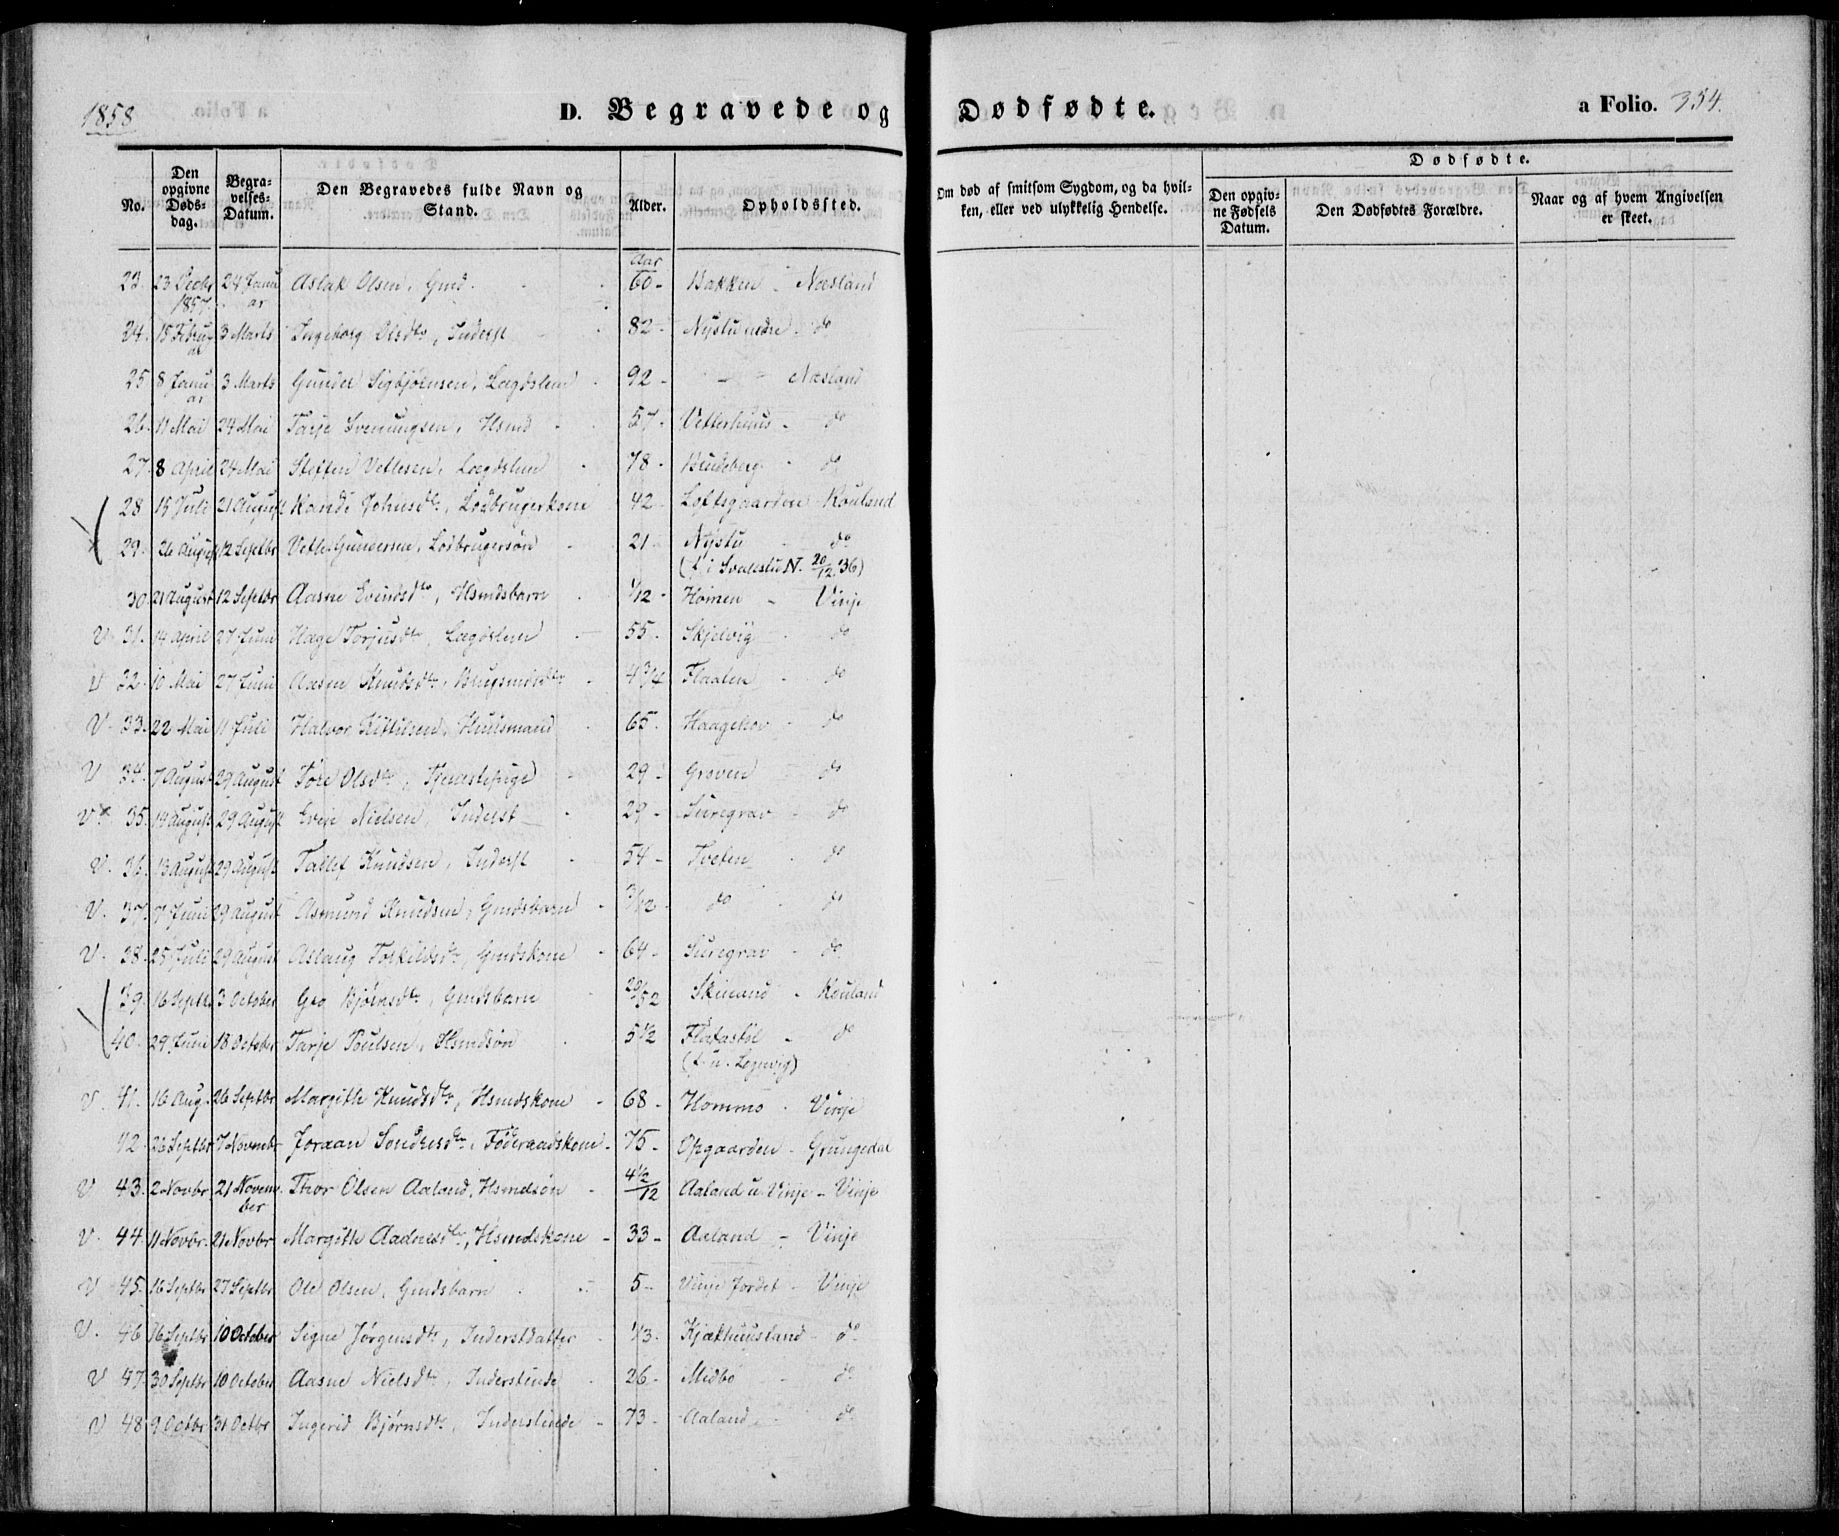 1858
D. Begravede og Dødfødte.
a Folio. 354.
No.
Den opgivne Døds-dag.
Begra-velses-Datum.
Den Begravedes fulde Navn og Stand.
Alder.
Opholdsted.
Om død af smitsom Sygdom, og da hvil-ken, eller ved ulykkelig Hendelse.
Dødfødte.
Den opgiv-ne Fødsels Datum.
Den Dødfødtes Forældre.
Naar og af hvem Angivelsen er skeet.
23. 23 Decbr 1857. 24 Januar Aslak Olsen, Gmd. Aar 60 - Bakken - Næsland
24. 15 Februar 3 Marts Ingeborg Olsdtr, Inderst 82 - Nystu nedre - do
25 8 Januar 3 Marts Gunder Sigbjørnsen, Lægdslem 92 - - " Næsland
26. 11 Mai 24 Mai Tarje Svenungsen, Hsmd - 57 - Vetterhuus - do
27. 8 April 24 Mai Steffen Vetlesen, Lægdslem 78 - Brudeberg - do
28 15 Juli 21 August Kandi Johnsdtr, Losbrugerkone 42 - Loftsgaarden - Rouland
29. 26 August 12 Septbr Vetle Gunersen, Losbrugersøn 21 - Nystu - do
(f. i Svalestu N. 20/12 36)
30. 21 August 12 Septbr Aasne Evindsdtr, Hsmdsbarn 1/12 - Homen - Vinje
V. 31. 14 April 27 Juni Hæge Torjusdtr, Lægdslem - 55 - Skjelvig - do
V 32. 10 Mai 27 Juni Aasne Knudsdtr, 4 3/4 Flaalen - do
V. 33. 22 Mai 11 Juli Halvor Kittilsen, Huusmand 65 - Haagehov - do
V 34. 7 August 29 August Tore Olsdtr, Tjenestepige 29 - Groven - do
V 35. 14 August 29 August Evje Nielsen, Inderst - 29 - Suregrav - do
V. 36. 13 August 29 August Tallef Knudsen, Inderst - 54 - Tveten - do
V. 37. 7 Juni 29 August Asmund Knudsen, Gmdsbarn 3/12 - do - do
V. 38. 25 Juli 29 August Aslaug Torkildsdtr, Gmdskone - 64 - Suregrav - do
39. 16 Septbr 3 October Gro Bjørnsdtr, Gmdsbarn 20/52 Skinand - Rouland
40. 29 Juni 18 October Tarje Poulsen, Hsmdsøn 5 1/2 Flatastøl - do
(f. u. Legevig)
V. 41. 16 Aug. 26 Septbr Margith Knudsdtr, Hsmdskone - 68 - Hommo - Vinje
42. 26 Septbr 7 Novembr Joraan Sondresdtr, Føderaadskone - 75 - Opgaarden - Grungedal
V 43. 2 Novbr. 21 November Thor Olsen Aaland, Hsmdsøn - 4 1/2/12 Aaland u. Vinje - Vinje
V. 44. 11 Novbr. 21 Novbr Margith Aadnesdtr, Hsmdskone - 33 - Aaland - Vinje
V 45. 16 Septbr 27 Septbr Ole Olsen, Gmdsbarn - 5 - Vinje Jordet - Vinje
V. 46 16 Septbr 10 October Signe Jørgensdtr, Inderstdatter 1/3 - Kjækhuusland - do
V 47. 30 Septbr 10 October Aasne Nielsdtr, Inderstinde - 26 - Midbø - do
V 48. 9 Octbr 31 Octbr Ingerid Bjørnsdtr, Inderstinde - 73 - Aaland - do